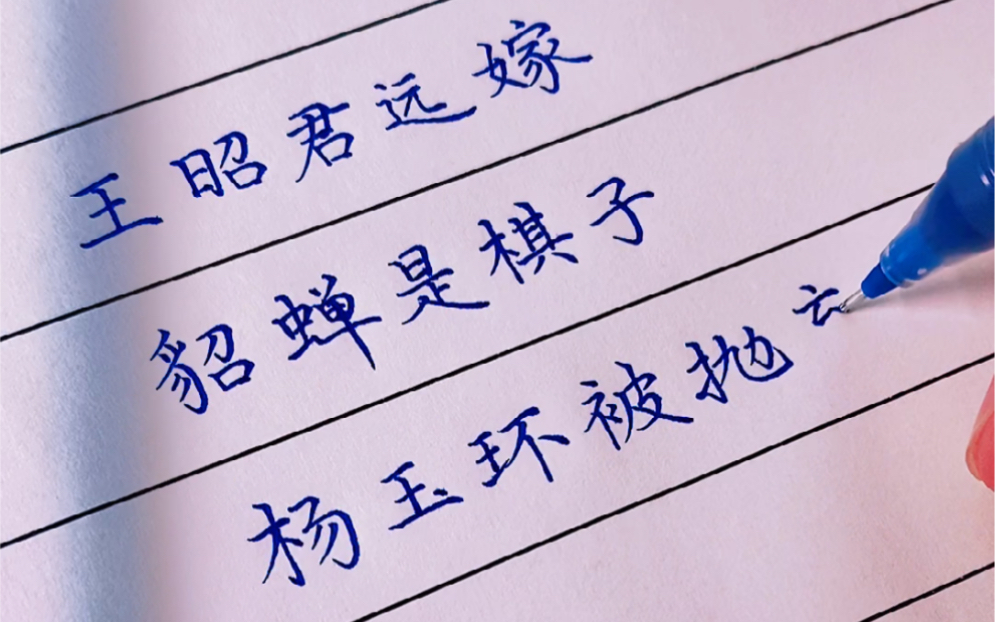 王昭君远嫁
貂蝉是棋子
杨玉环被抛